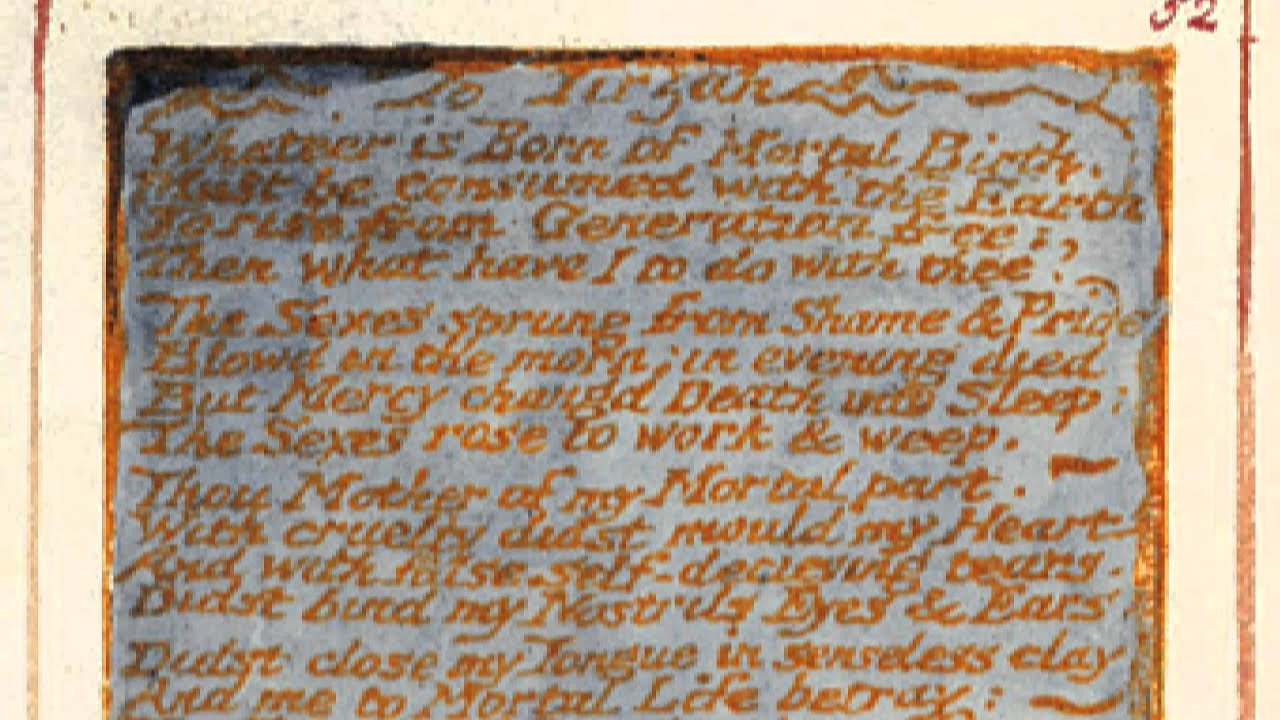 52
To Tirzah
Whateer is Born of Mortal Birth.
Must be consumed with the Earth
To rise from Generation free:
Then what have I to do with thee?
The Sexes sprung from Shame & Pride
Blowd in the morn: in evening died
But Mercy changd Death into Sleep:
The Sexes rose to work & weep.
Thou Mother of my Mortal part.
With cruelty didst mould my Heart
And with false self-decieving tears.
Didst bind my Nostrils Eyes & Ears
Didst close my Tongue in senseless clay
And me to Mortal Life betray: